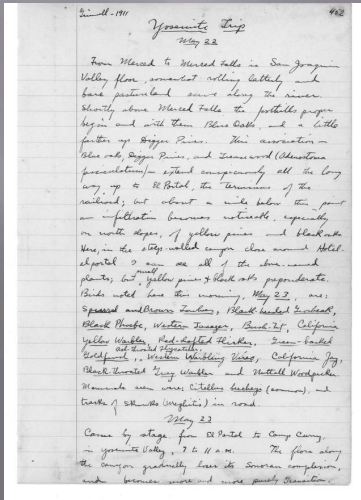 Grinnell - 1911
462
Yosemite Trip
May 22
From Merced to Merced Falls is San Joaquin
Valley floor, somewhat rolling latterly and
bare pastureland save along the river.
Shortly above Merced Falls the foothills proper
begin and with them Blue Oaks, and a little
farther up Digger Pines. This association—
Blue oaks, Digger Pines, and Greasewood (Adenostoma
fasciculatum)— extend conspicuously all the long
way up to El Portal, the terminus of the
railroad; but about a mile below this point
an infiltration becomes noticeable, especially
on north slopes, of yellow pines and black oaks.
Here, in the steep-walled canyon close around Hotel
el portal I can see all of the above-named
plants; but small yellow pines & black oaks preponderate.
Birds noted here this morning, May 23, are:
Spurred and Brown Towhees, Black-headed Grosbeak,
Black Phoebe, Western Tanager, Bush-Tit, California
Yellow Warbler, Red-shafted Flicker, Green-backed
Goldfinch, Ash-throated Flycatcher, Western Warbling Vireo, California Jay,
Black-throated Gray Warbler and Nuttall Woodpecker.
Mammals seen were: Citellus beecheyi (common), and
tracks of skunks in road.
May 23
Came by stage from El Portal to Camp Curry,
in Yosemite Valley, 7 to 11 a.m. The flora along
the canyon gradually loses its Sonoran complexion,
and becomes more and more purely Transition.